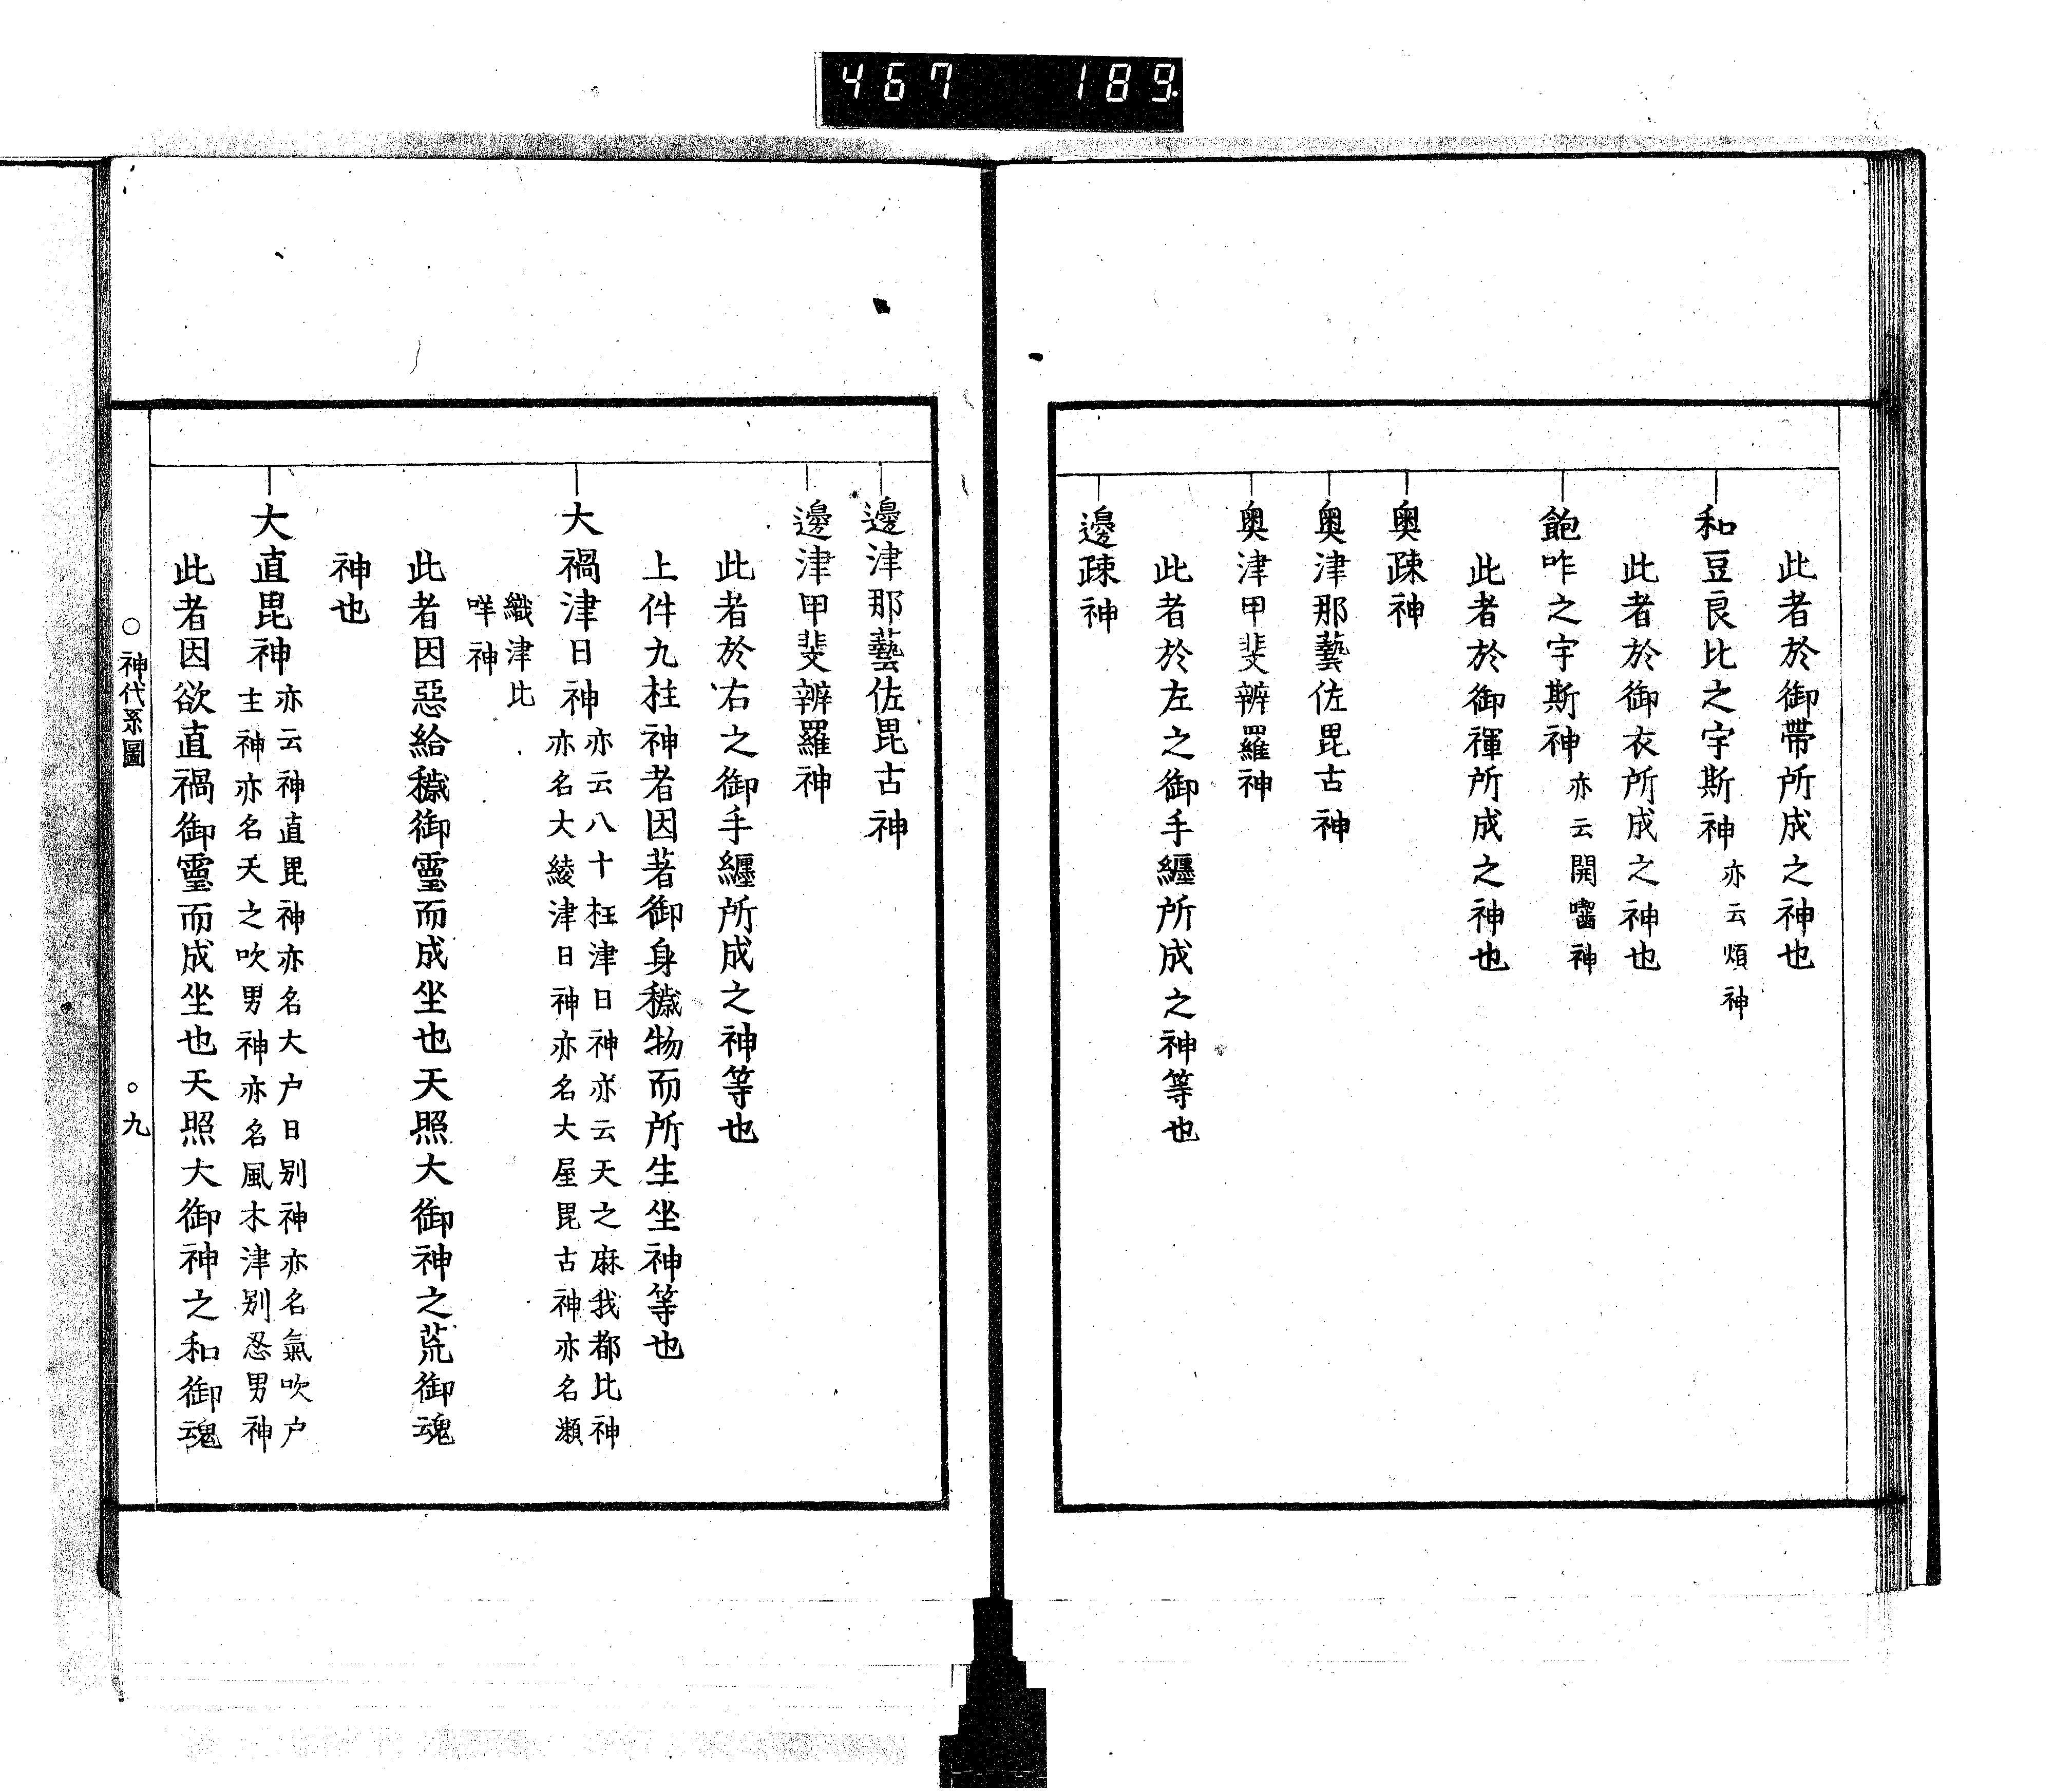 467 189.
此者於御帶所成之神也
和豆良比之宇斯神亦云煩神
此者於御衣所成之神也
飽咋之宇斯神亦云開囓神
此者於御褌所成之神也
奥疎神
奥津那藝佐毘古神
奥津甲斐辨羅神
此者於左之御手纒所成之神等也
邊疎神
邊津那藝佐毘古神
邊津甲斐辨羅神
此者於右之御手纒所成之神等也
上件九柱神者因著御身穢物而所生坐神等也
大禍津日神
亦云八十枉津日神亦云天之麻我都比神
亦名大綾津日神亦名大屋毘古神亦名瀬
織津比
咩神
此者因惡給穢御靈而成坐也天照大御神之荒御魂
神也
大直毘神
亦云神直毘神亦名大戸日別神亦名氣吹戸
主神亦名天之吹男神亦名風木津別忍男神
此者因欲直禍御靈而成坐也天照大御神之和御魂
○神代系圖 ○九